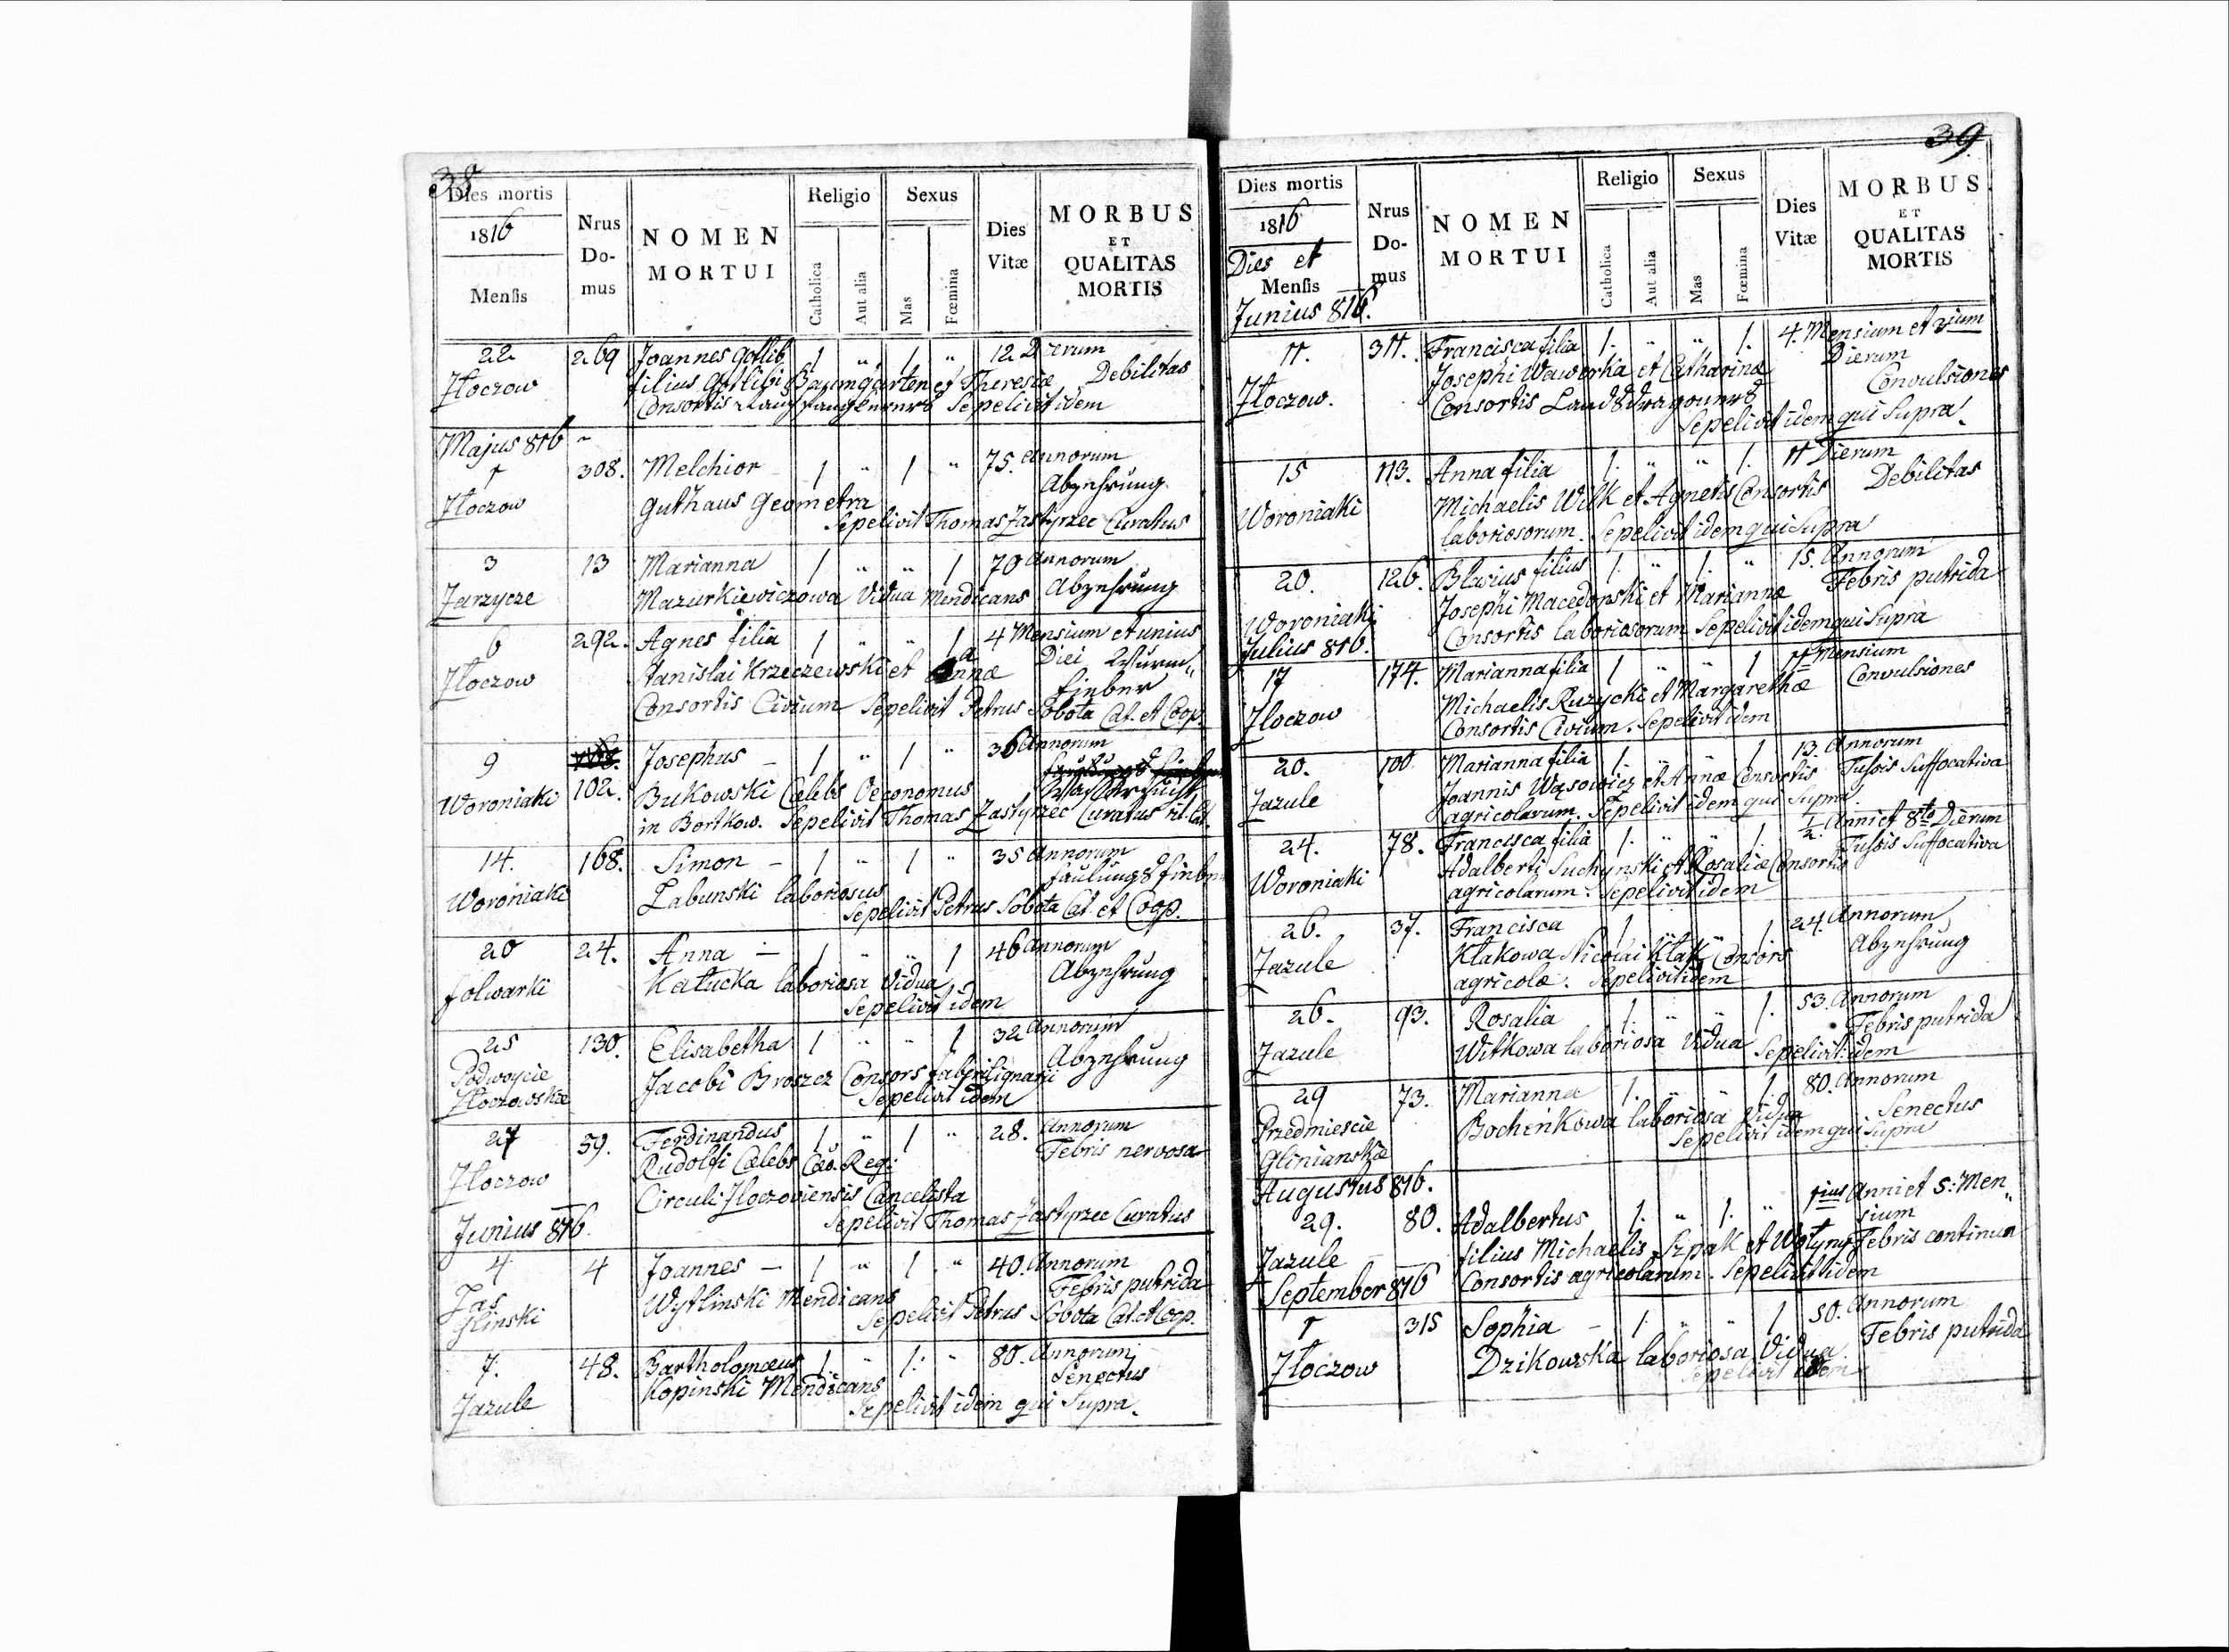 38
Dies mortis
1816
Mensis
Nrus Do-mus
NOMEN MORTUI
Religio
Catholica
Aut alia
Sexus
Mas
Fœmina
Dies Vitæ
MORBUS ET QUALITAS MORTIS
22 269 Joannes Gottlib 1 " 1 " 12 Dierum
Złoczow filius Gotlibi Baumgarten et Theresiæ Debilitas
Consortis Sepelivit idem
Majus 816
1 308. Melchior 1 " 1 " 75. Annorum
Abzehrung
Złoczow Guthaus Geometra
Sepelivit Thomas Zastyrzec Curatus
3 13 Marianna 1 " " 1 70 Annorum
Zarzycze Mazurkiewiczowa Vidua Mendicans Abzehrung
6 292. Agnes filia 1 " " 1 4 Mensium et unius
Złoczow Stanislai Krzeczewski et Annæ Diei Wurm„
fieber
Consortis Civium Sepelivit Petrus Sobota Cat. et Coop.
9 Josephus – 1 " 1 " 36 Annorum
Woroniaki 102. Bukowski Cælebs Oeconomus
in Bortkow. Sepelivit Thomas Zastyrzec Curatus rit. lat.
14. 168. Simon – 1 " 1 " 35 Annorum
Faulungs Fieber
Woroniaki Labunski laboriosus
Sepelivit Petrus Sobota Cat. et Coop.
20 24. Anna – 1 " " 1 46 Annorum
folwarki Kałucka laboriosa Vidua Abzehrung
Sepelivit idem
25 130. Elisabetha 1 " " 1 32 Annorum
Podwoycie Jacobi Broszcz Consors fabri lignarii Abzehrung
Złoczowskie Sepelivit idem
27 59. Ferdinandus 1 " 1 " 28. Annorum
Rudolfi Cælebs Cæs. Reg: Febris nervosa
Złoczow Circuli Złoczoviensis Cancelista
Sepelivit Thomas Zastyrzec Curatus
Junius 816.
4 4 Joannes – 1 " 1 " 40. Annorum
Zas Wytlinski Mendicans Febris putrida
Glinski Sepelivit Petrus Sobota Cat. et Coop.
7. 48. Bartholomæus 1. " 1. " 80. Annorum
Zazule Kopinski Mendicans Senectus
Sepelivit idem qui Supra.
39
Dies mortis
1816
Dies et
Mensis
Junius 816.
Nrus Do-mus
NOMEN MORTUI
Religio
Catholica
Aut alia
Sexus
Mas
Fœmina
Dies Vitæ
MORBUS ET QUALITAS MORTIS
11. 311. Francisca filia 1. " " 1. 4. Mensium et 2ium
Dierum
Złoczow. Josephi Wawerka et Catharinæ Convulsiones
Consortis Landsdragouners
Sepelivit idem qui Supra.
15 113. Anna filia 1. " " 1. 11 Dierum
Woroniaki Michaelis Wilk et Agnetis Consortis Debilitas
laboriosorum. Sepelivit idem qui Supra
20. 126. Blasius filius 1. " 1. " 15. Annorum
Woroniaki Josephi Macedonski et Mariannæ Febris putrida
Consortis laboriosorum Sepelivit idem qui Supra
Julius 816.
17 174. Marianna filia 1 " " 1 11 Mensium
Złoczow Michaelis Ruzycki et Margarethæ Convulsiones
Consortis Civium. Sepelivit idem
20. 100 Marianna filia 1. " " 1 13. Annorum
Zazule Joannis Wąsowicz et Annæ Consortis Tussis Suffocativa
agricolarum. Sepelivit idem qui Supra.
24. 78. Francisca filia 1. " " 1. ½. Anni et 8to Dierum
Woroniaki Adalberti Suchynski et Rosaliæ Consortis Tussis Suffocativa
agricolarum. Sepelivit idem
26. 37. Francisca 1. " " 1 24. Annorum
Zazule Kłakowa Nicolai Kłak Consors Abzehrung
agricolæ. Sepelivit idem
26. 93. Rosalia 1. " " 1. 53. Annorum
Febris putrida
Zazule Witkowa laboriosa Vidua Sepelivit idem
29 73. Marianna 1. " " 1. 80. Annorum
Przedmiescie Bochenkowa laboriosa Vidua Senectus
Glinianskie Sepelivit idem qui Supra
Augustus 816.
29. 80. Adalbertus 1. " 1. " 1ius Anni et 5: Men„
sium
Zazule filius Michaelis Szpak et Febris continua
Consortis agricolarum. Sepelivit idem
September 816
1 315 Sophia – 1. " " 1 50. Annorum
Złoczow Dzikowska laboriosa Vidua Febris putrida
Sepelivit idem